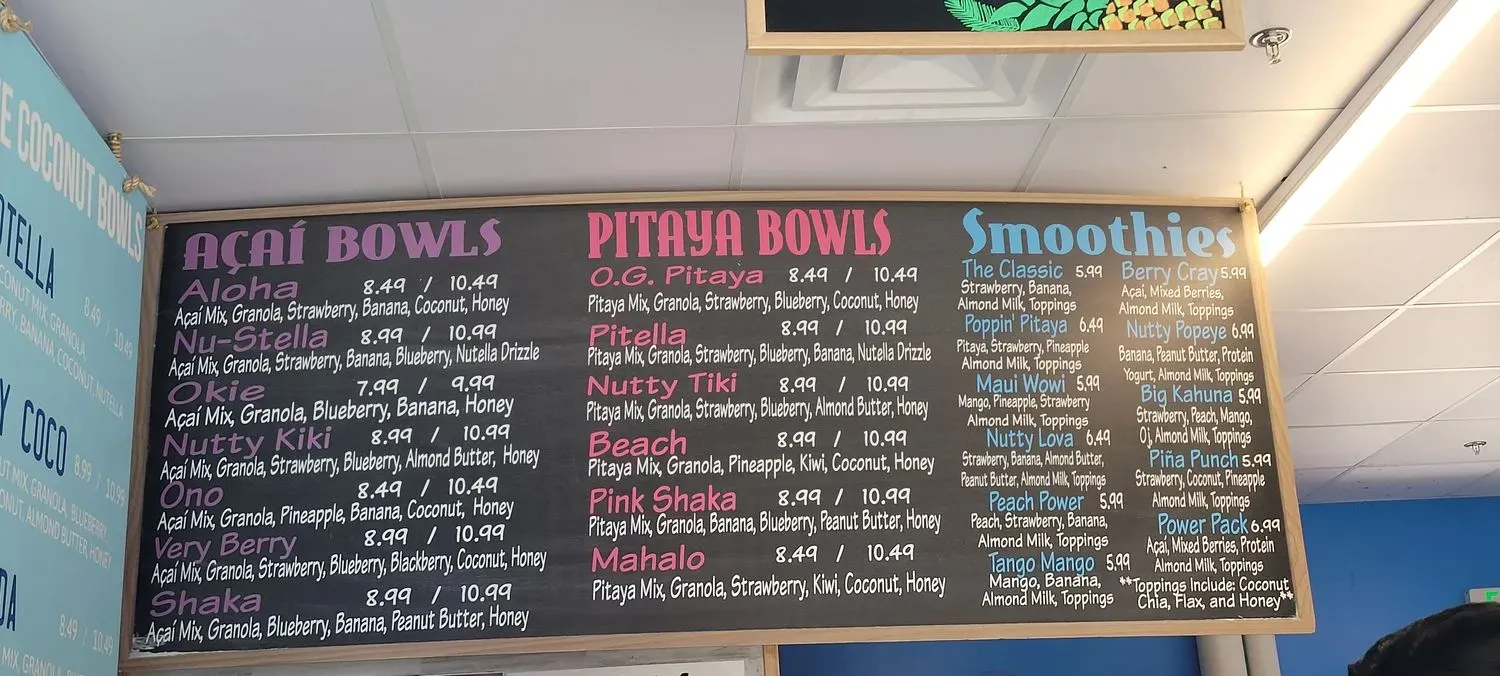 E COCONUT BOWLS
OTELLA
8.49 / 10.49
COCONUT MIX, GRANOLA,
BERRY, BANANA, COCONUT, NUTELLA
Y COCO
8.99 / 10.99
UT MIX, GRANOLA, BLUEBERRY,
CONUT, ALMOND BUTTER, HONEY
DA
8.49 / 10.49
MIX, GRANOLA,
AÇAÍ BOWLS
Aloha 8.49 / 10.49
Açaí Mix, Granola, Strawberry, Banana, Coconut, Honey
Nu-Stella 8.99 / 10.99
Açaí Mix, Granola, Strawberry, Banana, Blueberry, Nutella Drizzle
Okie 7.99 / 9.99
Açaí Mix, Granola, Blueberry, Banana, Honey
Nutty Kiki 8.99 / 10.99
Açaí Mix, Granola, Strawberry, Blueberry, Almond Butter, Honey
Ono 8.49 / 10.49
Açaí Mix, Granola, Pineapple, Banana, Coconut, Honey
Very Berry 8.99 / 10.99
Açaí Mix, Granola, Strawberry, Blueberry, Blackberry, Coconut, Honey
Shaka 8.99 / 10.99
Açaí Mix, Granola, Blueberry, Banana, Peanut Butter, Honey
PITAYA BOWLS
O.G. Pitaya 8.49 / 10.49
Pitaya Mix, Granola, Strawberry, Blueberry, Coconut, Honey
Pitella 8.99 / 10.99
Pitaya Mix, Granola, Strawberry, Blueberry, Banana, Nutella Drizzle
Nutty Tiki 8.99 / 10.99
Pitaya Mix, Granola, Strawberry, Blueberry, Almond Butter, Honey
Beach 8.99 / 10.99
Pitaya Mix, Granola, Pineapple, Kiwi, Coconut, Honey
Pink Shaka 8.99 / 10.99
Pitaya Mix, Granola, Banana, Blueberry, Peanut Butter, Honey
Mahalo 8.49 / 10.49
Pitaya Mix, Granola, Strawberry, Kiwi, Coconut, Honey
Smoothies
The Classic 5.99
Strawberry, Banana,
Almond Milk, Toppings
Poppin' Pitaya 6.49
Pitaya, Strawberry, Pineapple
Almond Milk, Toppings
Maui Wowi 5.99
Mango, Pineapple, Strawberry
Almond Milk, Toppings
Nutty Lova 6.49
Strawberry, Banana, Almond Butter,
Peanut Butter, Almond Milk, Toppings
Peach Power 5.99
Peach, Strawberry, Banana,
Almond Milk, Toppings
Tango Mango 5.99
Mango, Banana,
Almond Milk, Toppings
Berry Cray 5.99
Açaí, Mixed Berries,
Almond Milk, Toppings
Nutty Popeye 6.99
Banana, Peanut Butter, Protein
Yogurt, Almond Milk, Toppings
Big Kahuna 5.99
Strawberry, Peach, Mango,
OJ, Almond Milk, Toppings
Piña Punch 5.99
Strawberry, Coconut, Pineapple
Almond Milk, Toppings
Power Pack 6.99
Açaí, Mixed Berries, Protein
Almond Milk, Toppings
**Toppings Include: Coconut
Chia, Flax, and Honey**